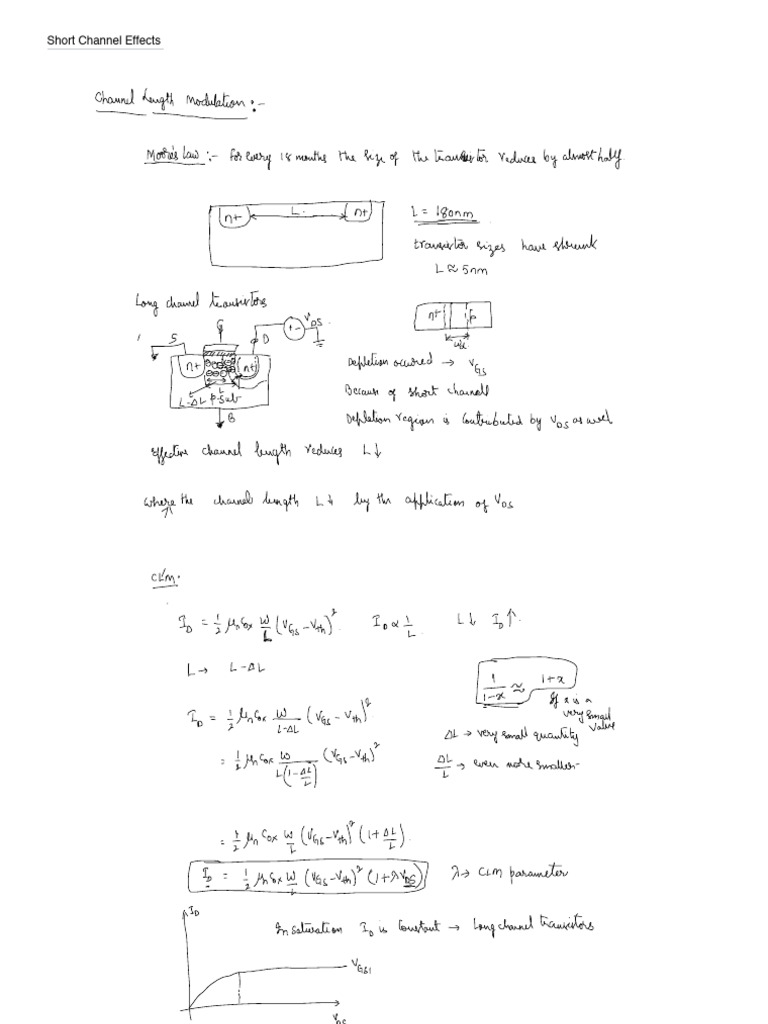 Short Channel Effects
Channel Length Modulation :-
Moore's Law :- For every 18 months the size of the transistor reduces by almost half
n+ L n+
L = 180nm
transistor sizes have shrunk
L ≈ 5nm
Long channel transistors
S G D VDS
n+ n+
L-ΔL L P-sub
B
n+ p
Depletion occured → VGS
Because of short channel
Depletion region is contributed by VDS as well
Effective channel length reduces L↓
where the channel length L↓ by the application of VDS
CLM.
ID = 1/2 μn Cox W/L (VGS - Vth)² ID ∝ 1/L L↓ ID↑.
L → L-ΔL
1/(1-x) ≈ 1+x
If x is a
very small
value
ID = 1/2 μn Cox W/(L-ΔL) (VGS - Vth)²
ΔL → very small quantity
= 1/2 μn Cox W/(L(1-ΔL/L)) (VGS - Vth)²
ΔL/L → even more smaller
= 1/2 μn Cox W/L (VGS - Vth)² (1+ΔL/L).
ID = 1/2 μn Cox W/L (VGS - Vth)² (1+λVDS)
λ → CLM parameter
ID
In saturation ID is constant → Long channel transistors
VGS1
VDS